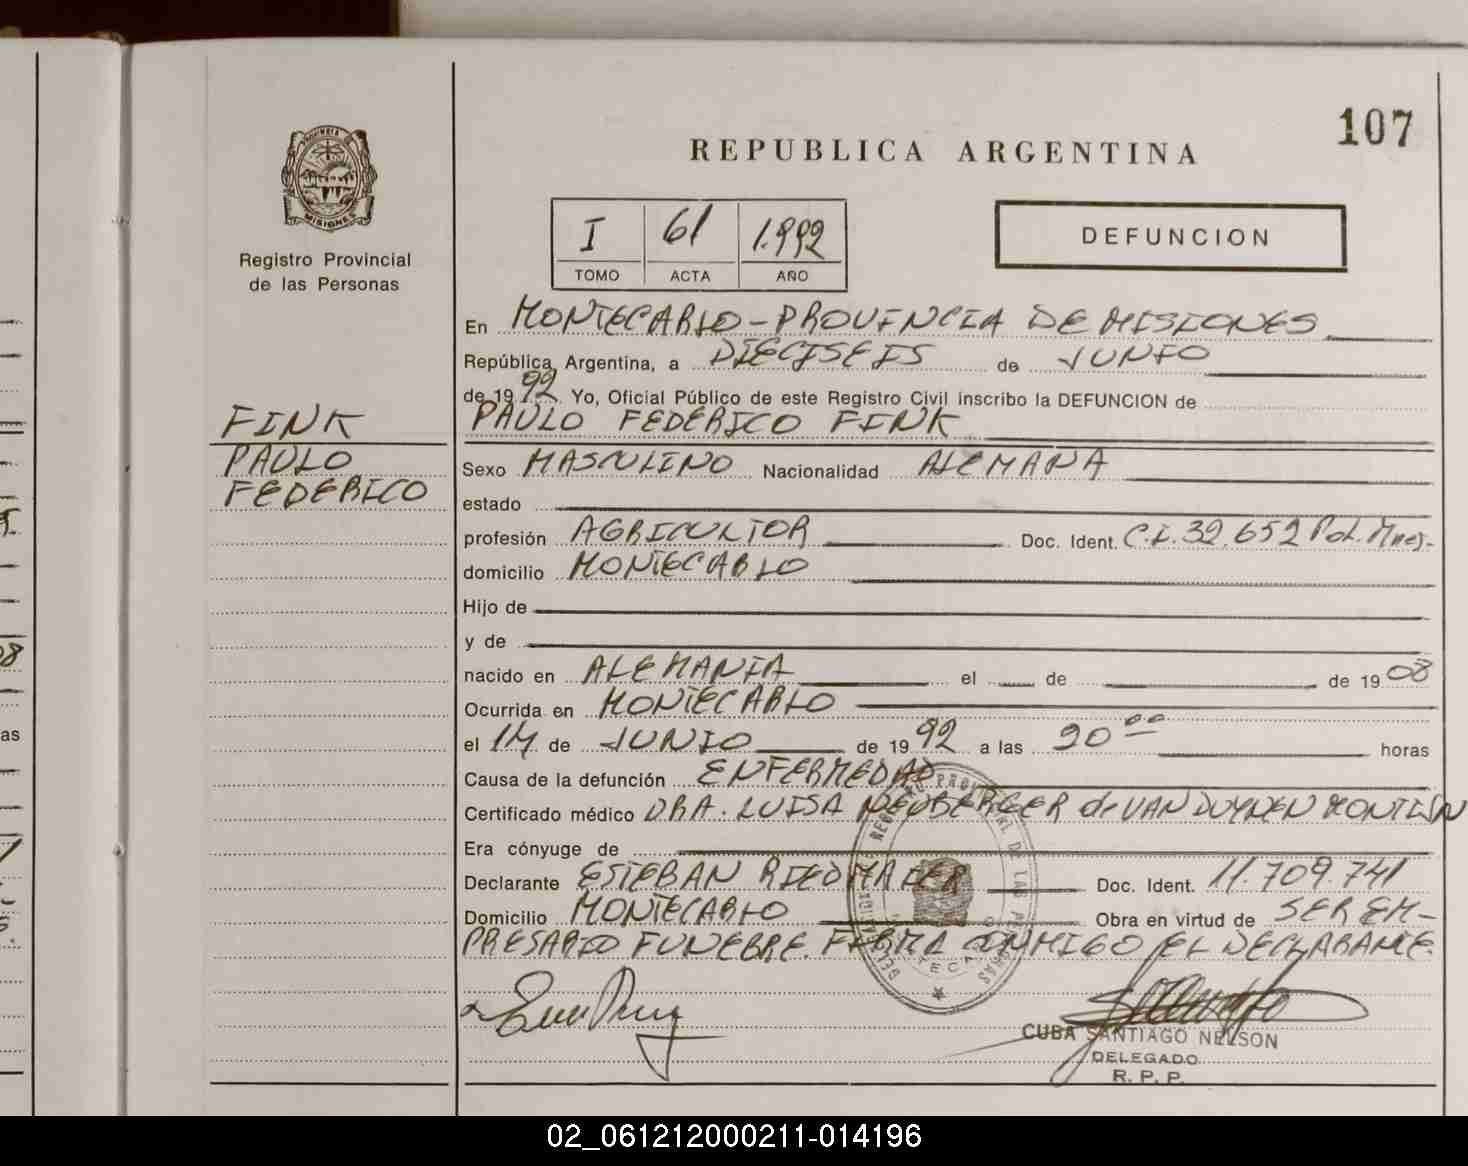 107
REPUBLICA ARGENTINA
PROVINCIA DE
MISIONES
Registro Provincial
de las Personas
I 61 1.992
TOMO ACTA AÑO
DEFUNCION
En MONTECARLO-PROVINCIA DE MISIONES
República Argentina, a DIECISEIS de JUNIO
de 1992 Yo, Oficial Público de este Registro Civil inscribo la DEFUNCION de
FINK
PAULO
FEDERICO
PAULO FEDERICO FINK
Sexo MASCULINO Nacionalidad ALEMANA
estado
profesión AGRICULTOR Doc. Ident. C.I. 32.652 Pol. Mnes.
domicilio MONTECARLO
Hijo de
y de
nacido en ALEMANIA el de de 1908
Ocurrida en MONTECARLO
el 14 de JUNIO de 1992 a las 20 00 horas
Causa de la defunción ENFERMEDAD
Certificado médico DRA. LUISA NEUBERGER de VAN DUYNEN
Era cónyuge de
Declarante ESTEBAN RIEDMAIER Doc. Ident. 11.709.741
Domicilio MONTECARLO Obra en virtud de SER EM-
PRESARIO FUNEBRE. FIRMA CONMIGO EL DECLARANTE.
CUBA SANTIAGO NELSON
DELEGADO
R. P. P.
02_061212000211-014196